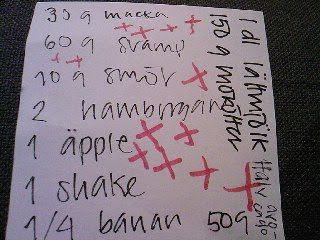 30 g macka
60 g svamp
10 g smör
2 hamburgare
1 äpple
1 shake
1/4 banan 50g
1 dl lättmjölk
150 g morötter
Halv avo-
cado